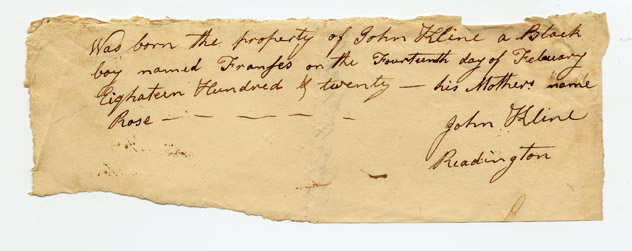 Was born the property of John Kline a Black
boy named Franses on the Fourteenth day of February
Eighateen Hundred & twenty — his Mothers name
Rose — — — — — —
John Kline
Readington